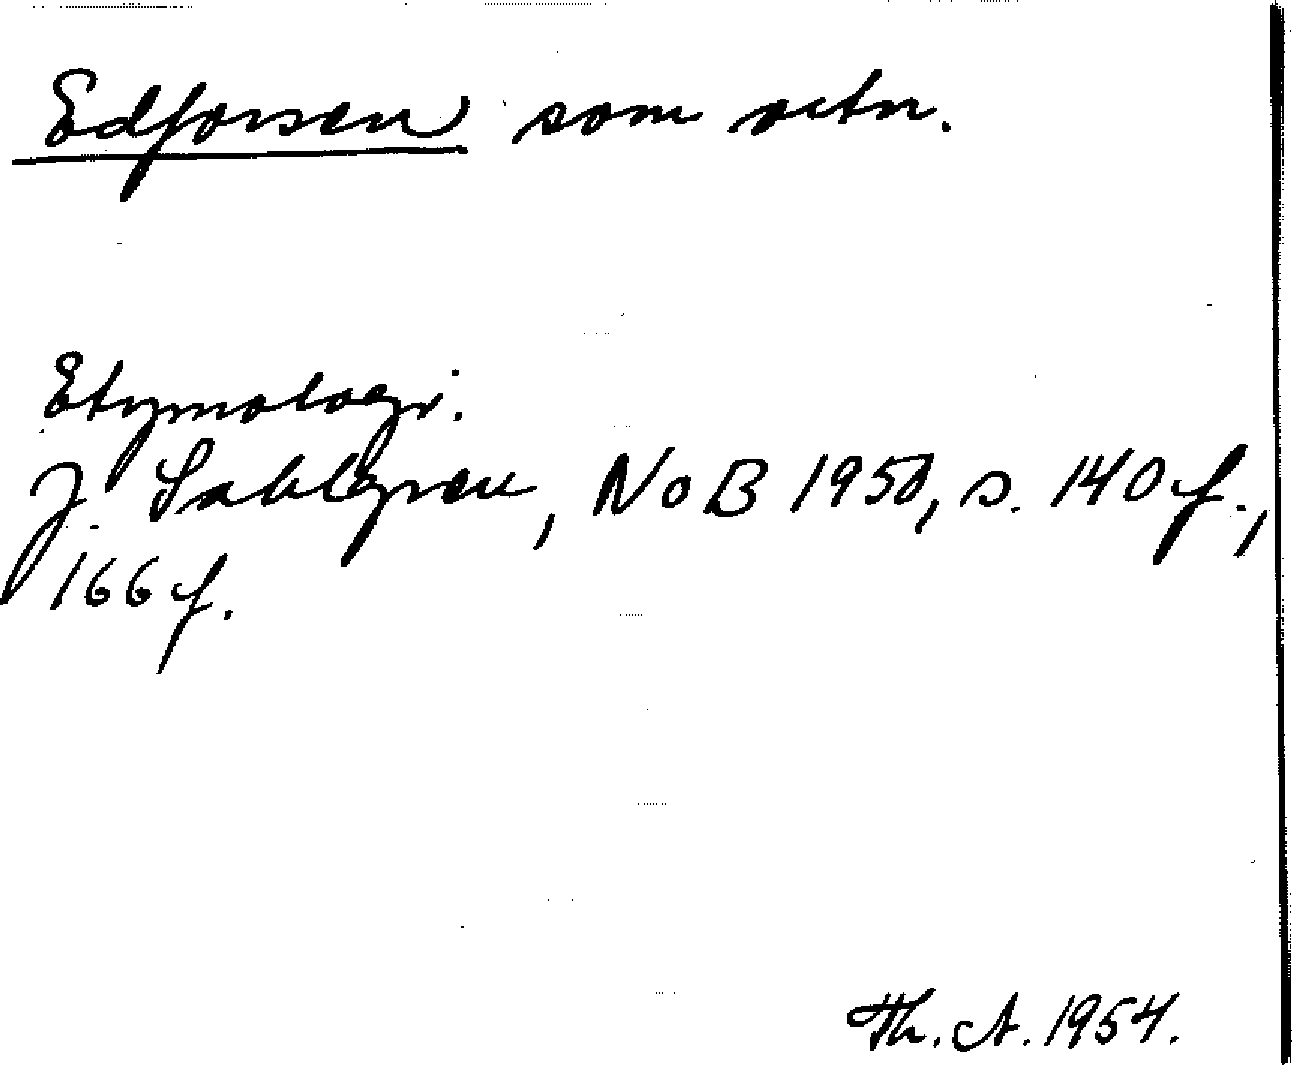 Edforsen som ortn.
Etymologi:
J. Sahlgren, NoB 1950, s. 140 f.,
166 f.
Th. A. 1954.